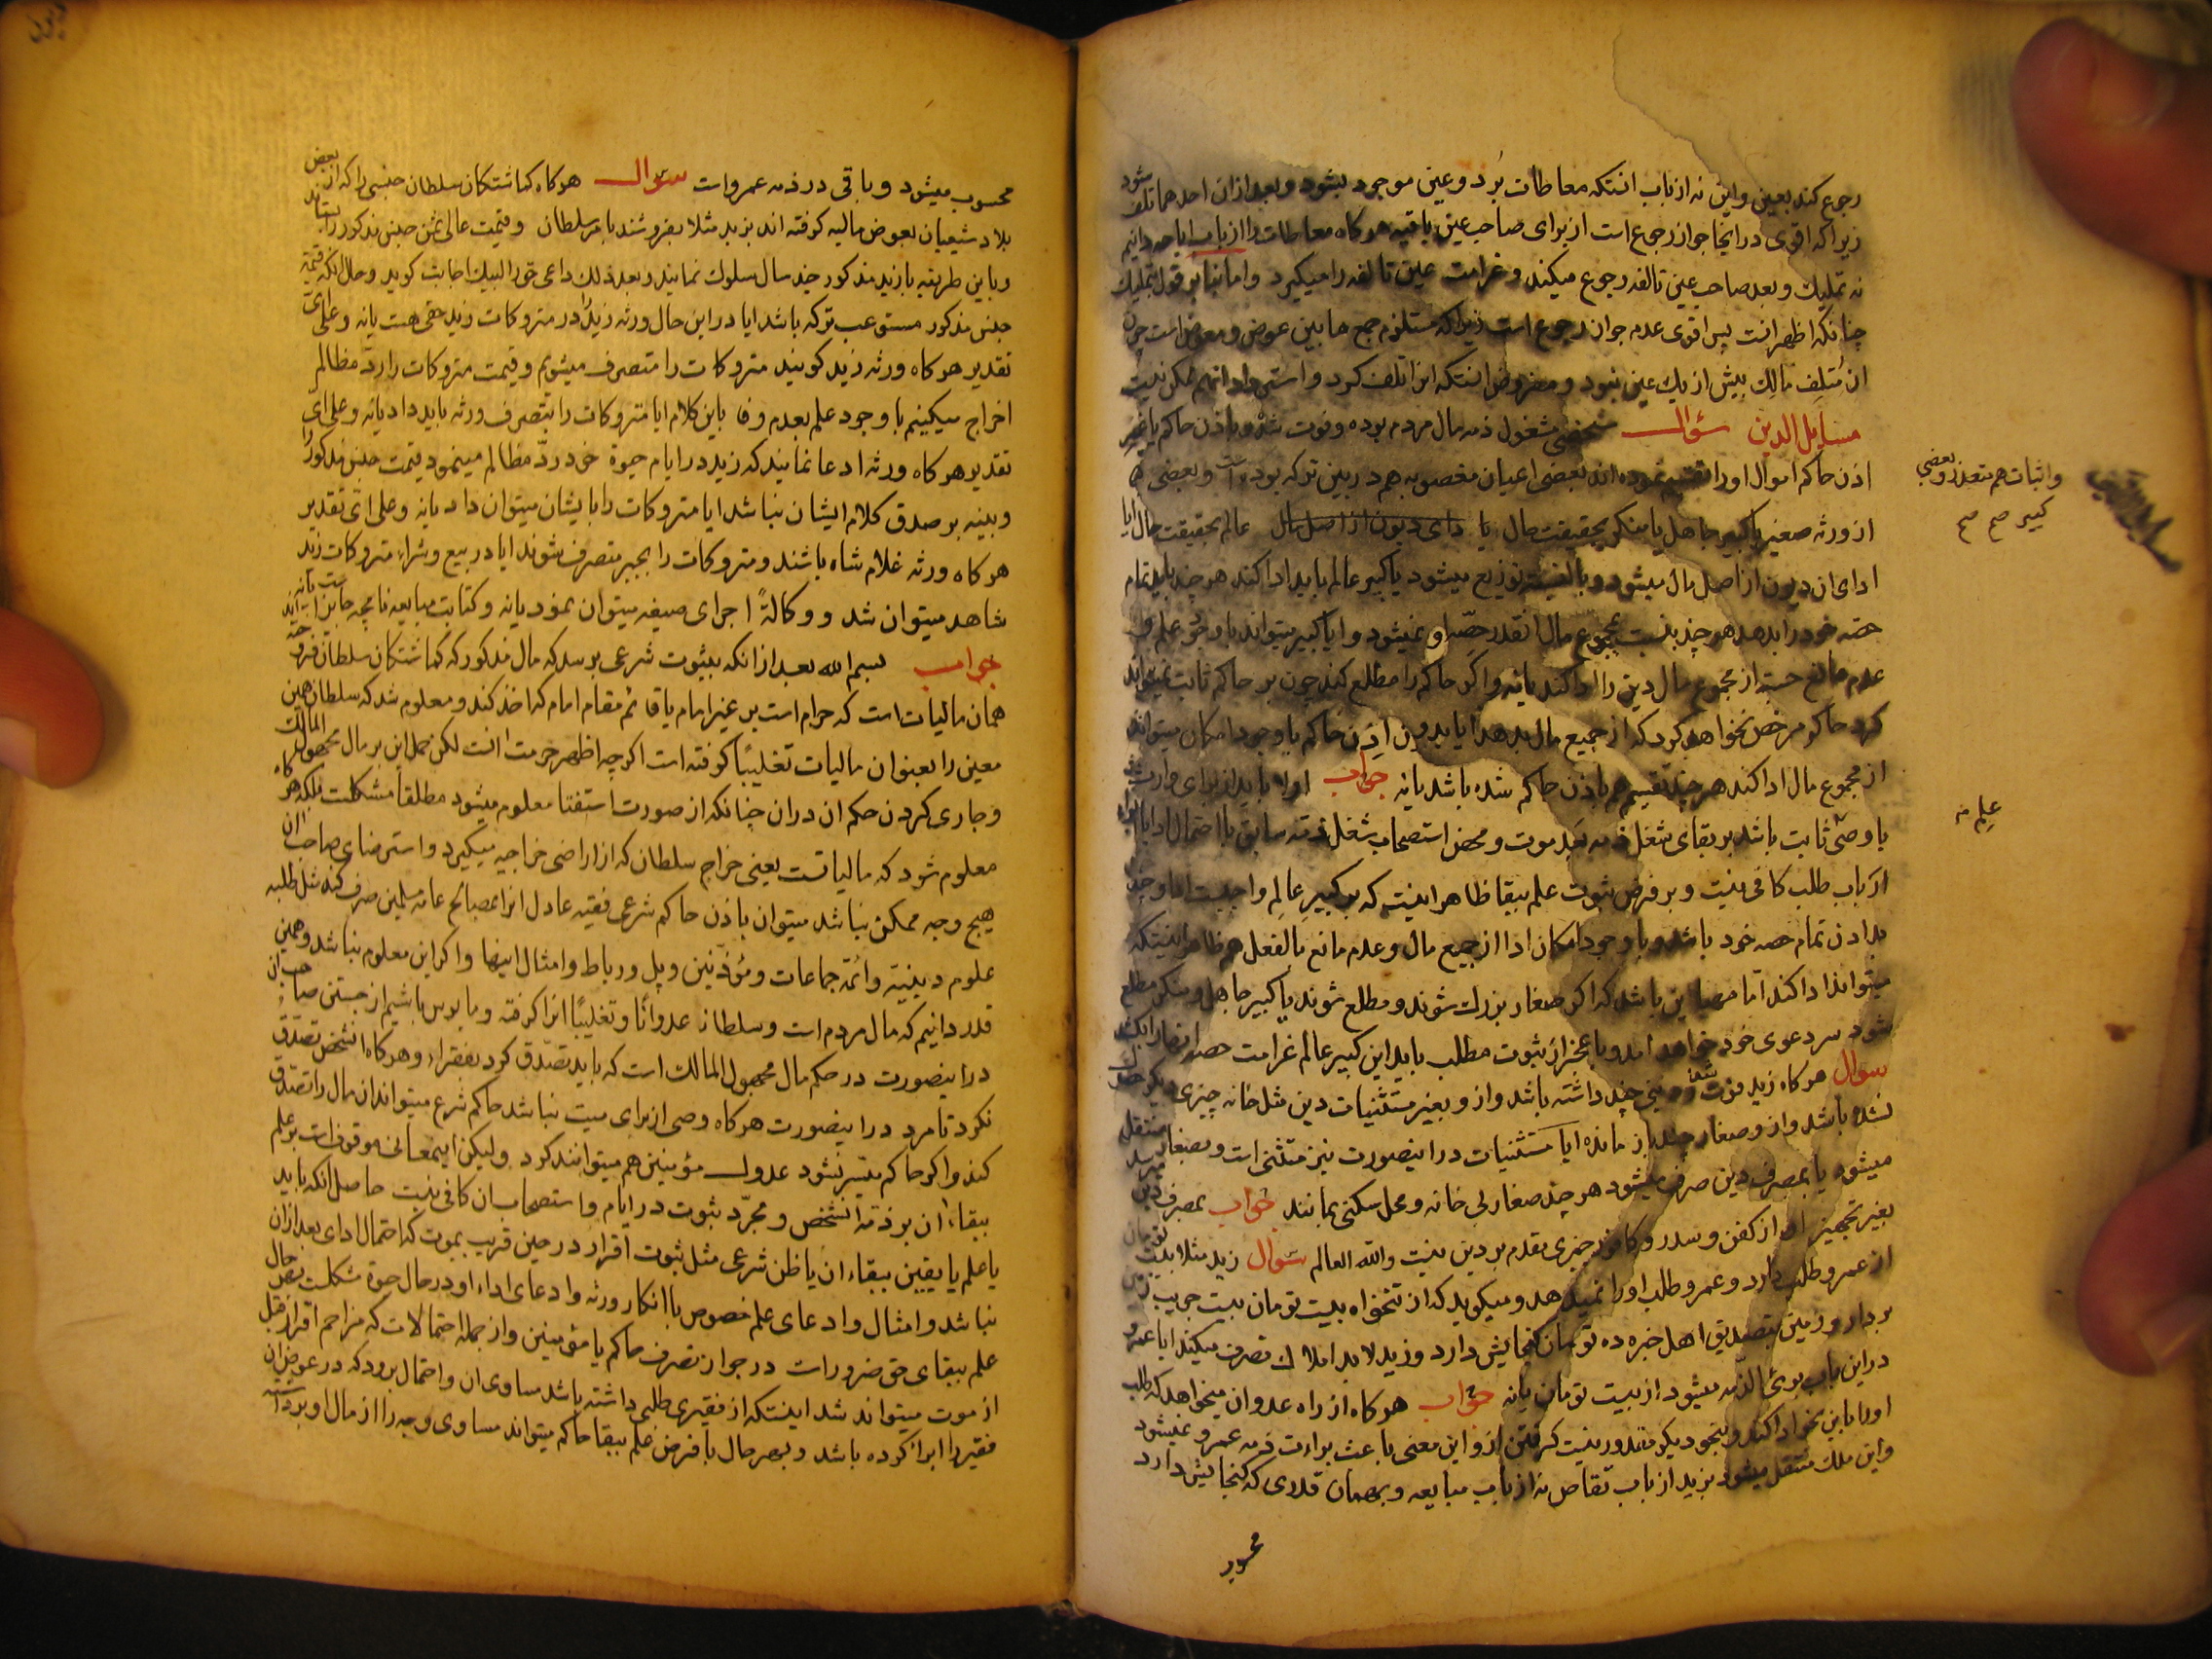 رجوع کند بعین و این نه از باب انستکه معاطات بُرد و عین موجود بشود و بعد از ان احدهما تلف شود
زیرا که اقوی در اینجا جواز رجوع است از برای صاحب عین باقیه هرکاه معاطات را از باب اباحه دانیم
نه تملیك و بعد صاحب عین تالفه رجوع میکند و غرامت عین تالفه را میکیرد و اما بنابر قول بتملیك
چنانکه اظهر انست پس اقوی عدم جواز رجوع است زیرا که مستلزم جمع مابین عوض و معوض است چون
ان مُتلِف مالِك بیش از یك عین نبود و مفروض انستکه انرا تلف کرد و استرداد انهم ممکن نیست
مسایل الدین سؤال شخصی مشغول ذمه مال مردم بوده و فوت شده و باذن حاکم یا غیر
اذن حاکم اموال او را تقسیم نموده اند بعضی اعیان مغصوبه هم در بین ترکه بوده است و بعضی
واثبات هم متعذر و بعضی کبیر صح صح
از ورثه صغیر یا کبیر جاهل یا منکر بحقیقت حال یا دای دیون از اصل مال عالم بحقیقت حال ایا
ادای ان دیون از اصل مال میشود و بالنسبه توزیع میشود یا کبیر عالم باید ادا کند هر چند باید تمام
حصه خود را بدهد هر چند بنسبت مجموع مال انقدر حصّه او نمیشود و ایا کبیر میتواند با وجود علم و
عدم مانع حسبه از مجموع مال دین را ادا کند یا نه و اکر حاکم را مطلع کند چون بر حاکم ثابت نمیتواند
کرد حاکم مرخص نخواهد کرد که از جمیع مال بدهد ایا بدون اذن حاکم با وجود امکان میتواند
از مجموع مال ادا کند هر چند تقسیم هم باذن حاکم شده باشد یا نه جواب اولا باید از برای وارث
علم مه
یا وصی ثابت باشد بر بقای شغل ذمه بعد موت و محض استصحاب شغل ذمّه سابق با احتمال ادا یا ابراء
ارباب طلب کافی نیست و بر فرض ثبوت علم ببقا ظاهر اینست که بر کبیرِ عالِم واجبست ادا و
بدادن تمام حصه خود باشد و با وجود امکان ادا از جمیع مال و عدم مانع بالفعل هم ظاهر اینستکه
میتواند ادا کند اما مهیای این باشد که اکر صغار بزرك شوند و مطلع شوند یا کبیر جاهل و منکر مطلع
شود سر دعوی خود خواهد امد و با عجز از ثبوت مطلب باید این کبیر عالم غرامت حصه انها را بکشد
سؤال هرکاه زید فوت شد و دینی چند داشته باشد و از و بغیر مستثنیات دین مثل خانه چیزی دیکر
نشده باشد و از و صغار چند باز مانده ایا مستثنیات در اینصورت نیز مستثنی است و بصغار منتقل
میشود یا بمصرف دین صرف میشود هر چند صغار بی خانه و محل سکنی بمانند جواب بمصرف دین میرسد
بغیر تجهیز او از کفن و سدر و کافور چیزی مقدم بر دین نیست والله العالم سؤال زید مثلا بیست تومان
از عمرو طلب دارد و عمرو طلب او را نمیدهد و میکوید که از تنخواه بیست تومان بیست جریب زمین
بردار و زمین بتصدیق اهل خبره ده تومان کنجایش دارد و زید لابد املاك تصرف میکند ایا عمرو
در این باب برئ الذّمه میشود از بیست تومان یا نه جواب هرکاه از راه عدوان میخواهد که طلب
او را باین نحو ادا کند و بنحو دیکر مقدور نیست کرفتن ازو این معنی باعث براءت ذمه عمرو نمیشود
و این ملك منتقل میشود بزید از باب تقاص نه از باب مبایعه و بهمان قدری که کنجایش دارد
محسوب
محسوب میشود و باقی در ذمه عمرو است سؤال هرکاه کماشتکان سلطان جنسی را که از بعض
بلاد شیعیان بعوض مالیه کرفته اند بزید مثلا بفروشند بامر سلطان و قیمت عالی ثمن جنس مذکور را بستاند
و باین طریقه با زید مذکور چند سال سلوك نمایند و بعد ذلك داعی حق را لبیك اجابت کوید و حال انکه قیمة
جنس مذکور مستوعب ترکه باشد ایا در این حال ورثه زید را در متروکات زید حقی هست یا نه و علی ایّ
تقدیر هرکاه ورثه زید کویند متروکات را متصرف میشویم و قیمت متروکات را ردّ مظالم
اخراج میکنیم با وجود علم بعدم وفا باین کلام ایا متروکات را بتصرف ورثه باید داد یا نه و علی ایّ
تقدیر هرکاه ورثه ادعا نمایند که زید در ایام حیوة خود ردّ مظالم مینمود قیمت جنس مذکور را
و بینه بر صدق کلام ایشان نباشد ایا متروکات را بایشان میتوان داد یا نه و علی ایّ تقدیر
هرکاه ورثه غلام شاه باشند و متروکات را بجبر متصرف شوند ایا در بیع و شراء متروکات زید
شاهد میتوان شد و وکالةً اجرای صیغه میتوان نمود یا نه و کتابت مبایعه نامچه جایز است یا نه
جواب بسم الله بعد از انکه بثبوت شرعی برسد که مال مذکور که کماشتکان سلطان فروخته اند
همان مالیات است که حرام است بر غیر امام یا قائم مقام امام که اخذ کند و معلوم شد که سلطان همین
معین را بعنوان مالیات تغلیبًا کرفته است اکرچه اظهر حرمت انست لکن حمل این بر مال مجهول المالك
و جاری کردن حکم ان دران چنانکه از صورت استفتا معلوم میشود مطلقا مشکلست بلکه هرکاه
معلوم شود که مالیاتست یعنی خراج سلطان که از اراضی خراجیه میکیرد و استرضای صاحب ان
هیچ وجه ممکن نباشد میتوان باذن حاکم شرعی فقیه عادل انرا بمصالح عامه مسلمین صرف کند مثل طلبه
علوم دینیة و ائمّه جماعات و مؤذّنین و پل و رباط و امثال اینها و اکر این معلوم نباشد و همین
قدر دانیم که مال مردم است و سلطان عدوانًا و تغلیبًا انرا کرفته و مایوس باشیم از جستن صاحب ان
در اینصورت در حکم مال مجهول المالك است که باید تصدّق کرد بفقراء و هرکاه انشخص تصدّق
نکرد تا مرد در اینصورت هرکاه وصی از برای میت نباشد حاکم شرع میتواند ان مال را تصدّق
کند و اکر حاکم میّسر نشود عدول مؤمنین هم میتوانند کرد ولیکن اینمعانی موقوف است بر علم
ببقاء ان بر ذمّه انشخص و مجرّد ثبوت در ایام و استصحاب ان کافی نیست حاصل انکه باید
یا علم یا یقین ببقاء ان یا ظن شرعی مثل ثبوت اقرار در حین قریب بموت که احتمال ادای بعد از ان
نباشد و امثال و ادعای علم خصوص با انکار ورثه و ادعای اداء او در حال حیوة مشکلست بهر حال
علم ببقای حق ضرورات در جواز تصرف حاکم یا مؤمنین و از جمله احتمالات که مزاحم اقرار قبل
از موت میتواند شد اینستکه از فقیری طلبی داشته باشد مساوی ان و احتمال برود که در عوض ان
فقیر را ابرا کرده باشد و بهر حال با فرض علم ببقا حاکم میتواند مساوی وجه را از مال او برداشته